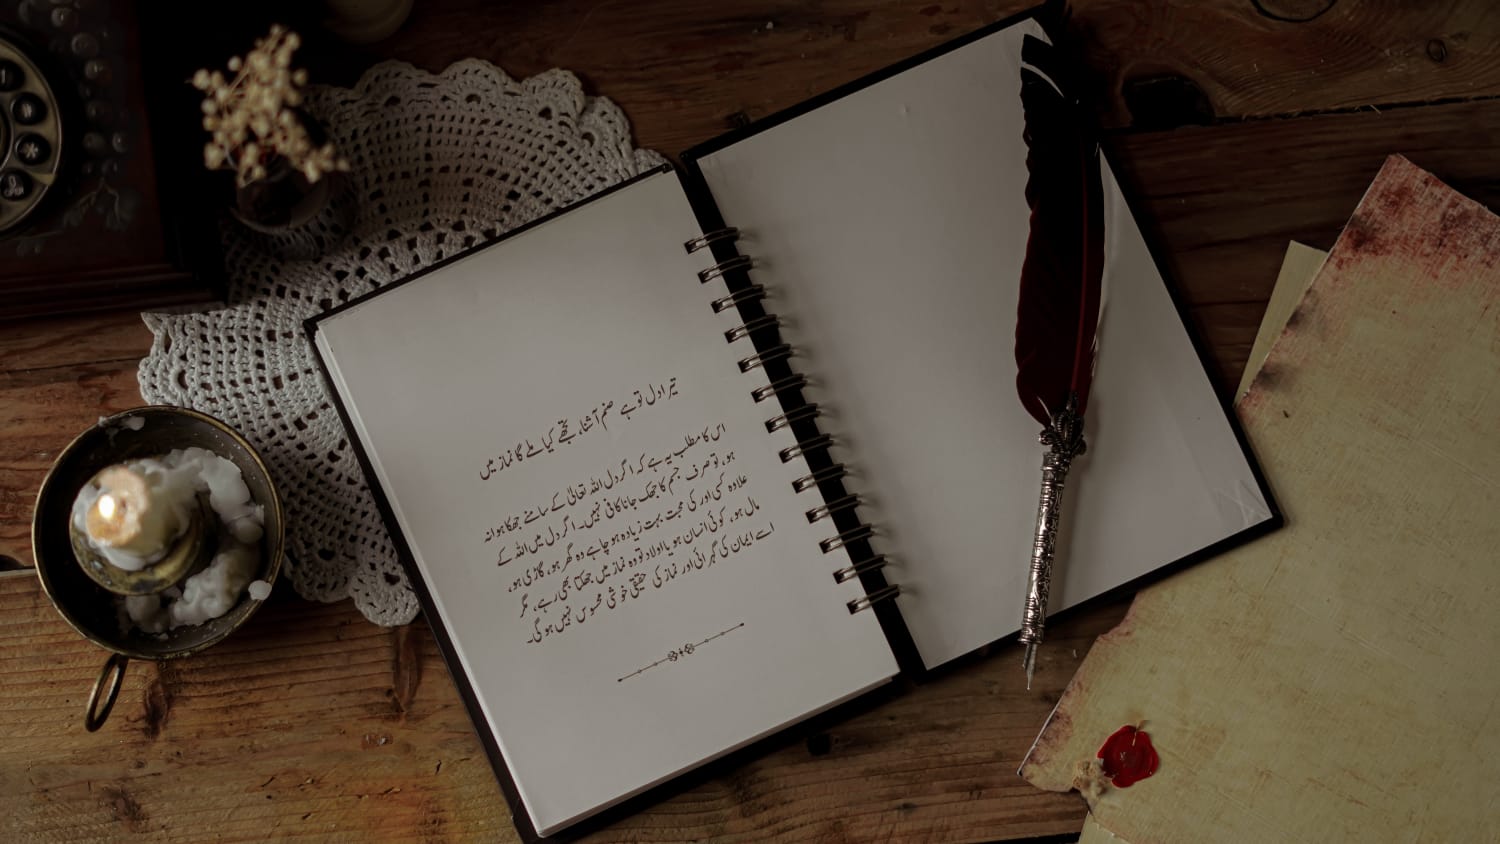 تیرا دل تو ہے صنم آشنا، تجھے کیا ملے گا نماز میں
اس کا مطلب یہ ہے کہ اگر دل اللہ تعالیٰ کے سامنے جھکا ہوا نہ
ہو، تو صرف جسم کا جھک جانا کافی نہیں۔ اگر دل میں اللہ کے
علاوہ کسی اور کی محبت بہت زیادہ ہو چاہے وہ گھر ہو، گاڑی ہو،
مال ہو، کوئی انسان ہو یا اولاد تو وہ نماز میں جھکتا بھی رہے، مگر
اسے ایمان کی گہرائی اور نماز کی حقیقی خوشی محسوس نہیں ہوگی۔